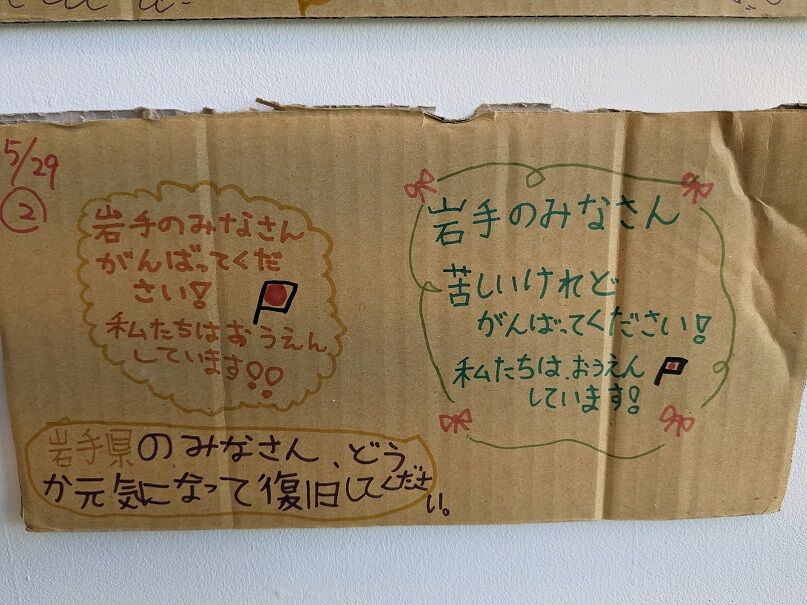 5/29
②
岩手のみなさん
がんばってくだ
さい!
私たちはおうえん
しています!!
岩手のみなさん
苦しいけれど
がんばってください!
私たちは、おうえん
しています!
岩手県のみなさん、どう
か元気になって復旧してくださ
い。